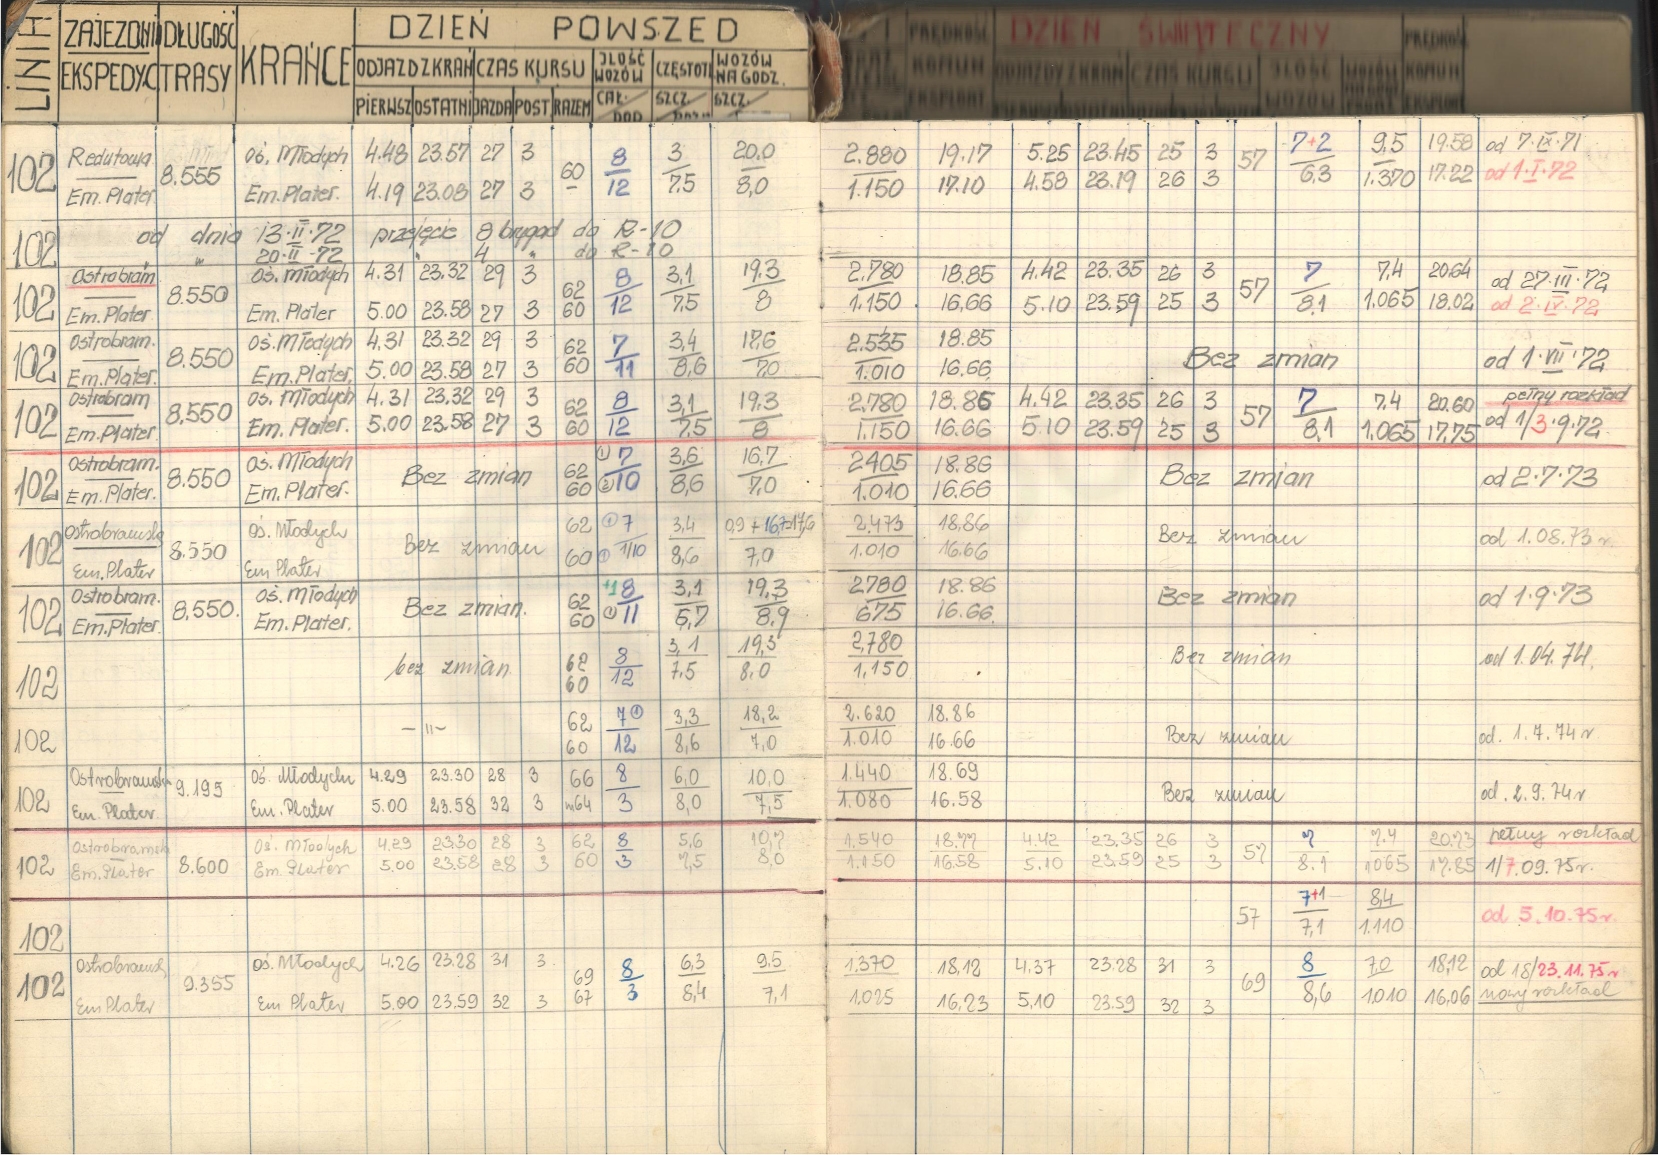 LINIA ZAJEZDNI EKSPEDYC DŁUGOŚĆ TRASY KRAŃCE DZIEŃ POWSZED
ODJAZD Z KRAŃ CZAS KURSU ILOŚĆ WOZÓW CZĘSTOTL WOZÓW NA GODZ.
PIERWSZ OSTATNI JAZDA POST RAZEM CAŁ. DOD SZCZ. SZCZ.
PRĘDKOŚĆ KOMUN EKSPLOAT DZIEŃ ŚWIĄTECZNY PRĘDKOŚĆ KOMUN EKSPLOAT
ODJAZDY Z KRAŃ CZAS KURSU ILOŚĆ WOZÓW
102 Redutowa 8.555 Oś. Młodych 4.48 23.57 27 3 60 8 3 20,0 2.880 19.17 5.25 23.45 25 3 57 7+2 9,5 19.58 od 7·IX·71
Em. Plater Em. Plater. 4.19 23.08 27 3 – 12 7,5 8,0 1.150 17.10 4.58 23.19 26 3 6,3 1.370 17.22 od 1·I·72
102 od dnia 13·II·72 przejęcie 8 brygad do R-10
" 20·II·72 " 4 " do R-10
102 Ostrobram 8.550 Oś. Młodych 4.31 23.32 29 3 62 8 3,1 19,3 2.780 18.85 4.42 23.35 26 3 57 7 7,4 20.64 od 27·III·72
Em. Plater Em. Plater 5.00 23.58 27 3 60 12 7,5 8 1.150 16,66 5.10 23.59 25 3 8,1 1.065 18.02 od 2·IV·72
102 Ostrobram. 8.550 Oś. Młodych 4,31 23.32 29 3 62 7 3,4 17,6 2.535 18.85 Bez zmian od 1·VII·72
Em. Plater. Em. Plater. 5.00 23.58 27 3 60 11 8,6 7,0 1.010 16.66
102 Ostrobram 8.550 Oś. Młodych 4.31 23.32 29 3 62 8 3,1 19,3 2.780 18.86 4.42 23.35 26 3 57 7 7,4 20.60 pełny rozkład
Em. Plater. Em. Plater. 5.00 23.58 27 3 60 12 7,5 8 1.150 16.66 5.10 23.59 25 3 8,1 1.065 17,75 od 1/3·9·72
102 Ostrobram. 8.550 Oś. Młodych Bez zmian 62 ① 7 3,6 16,7 2405 18.86 Bez zmian od 2·7·73
Em. Plater. Em. Plater. 60 ② 10 8,6 7,0 1.010 16.66
102 Ostrobramska 8.550 Oś. Młodych Bez zmian 62 ① 7 3,4 0,9 + 16,7=17,6 2.473 18,86 Bez zmian od 1.08.73 r.
Em. Plater Em Plater 60 ① 1/10 8,6 7,0 1.010 16.66
102 Ostrobram. 8,550. Oś. Młodych Bez zmian. 62 +1 8 3,1 19,3 2780 18.86 Bez zmian od 1·9·73
Em. Plater. Em. Plater. 60 ① 11 6,7 8,9 675 16.66
102 bez zmian 62 8 3,1 19,3 2,780 Bez zmian od 1.04.74.
60 12 7,5 8,0 1,150
102 – 11 – 62 7① 3,3 18,2 2.620 18.86 Bez zmian od. 1.7.74 r
60 12 8,6 7,0 1.010 16.66
102 Ostrobramska 9.195 Oś. Młodych 4.29 23.30 28 3 66 8 6,0 10,0 1.440 18.69 Bez zmian od. 2.9.74 r
Em. Plater Em. Plater 5.00 23.58 32 3 64 3 8,0 7,5 1.080 16.58
102 Ostrobramska 8.600 Oś. Młodych 4.29 23.30 28 3 62 8 5,6 10,7 1.540 18.77 4.42 23.35 26 3 57 7 7.4 20.73 pełny rozkład
Em. Plater Em. Plater 5.00 23.58 28 3 60 3 7,5 8,0 1.150 16.58 5.10 23.59 25 3 8.1 1065 17.85 1/7.09.75 r.
102 57 7+1 8,4 od 5.10.75 r.
7,1 1.110
102 Ostrobramsk 9.355 Oś. Młodych 4.26 23.28 31 3 69 8 6,3 9,5 1.370 18,12 4.37 23.28 31 3 69 8 7,0 18,12 od 18/23.11.75 r
Em Plater Em Plater 5.00 23.59 32 3 67 3 8,4 7,1 1.025 16,23 5,10 23.59 32 3 8,6 1.010 16,06 nowy rozkład